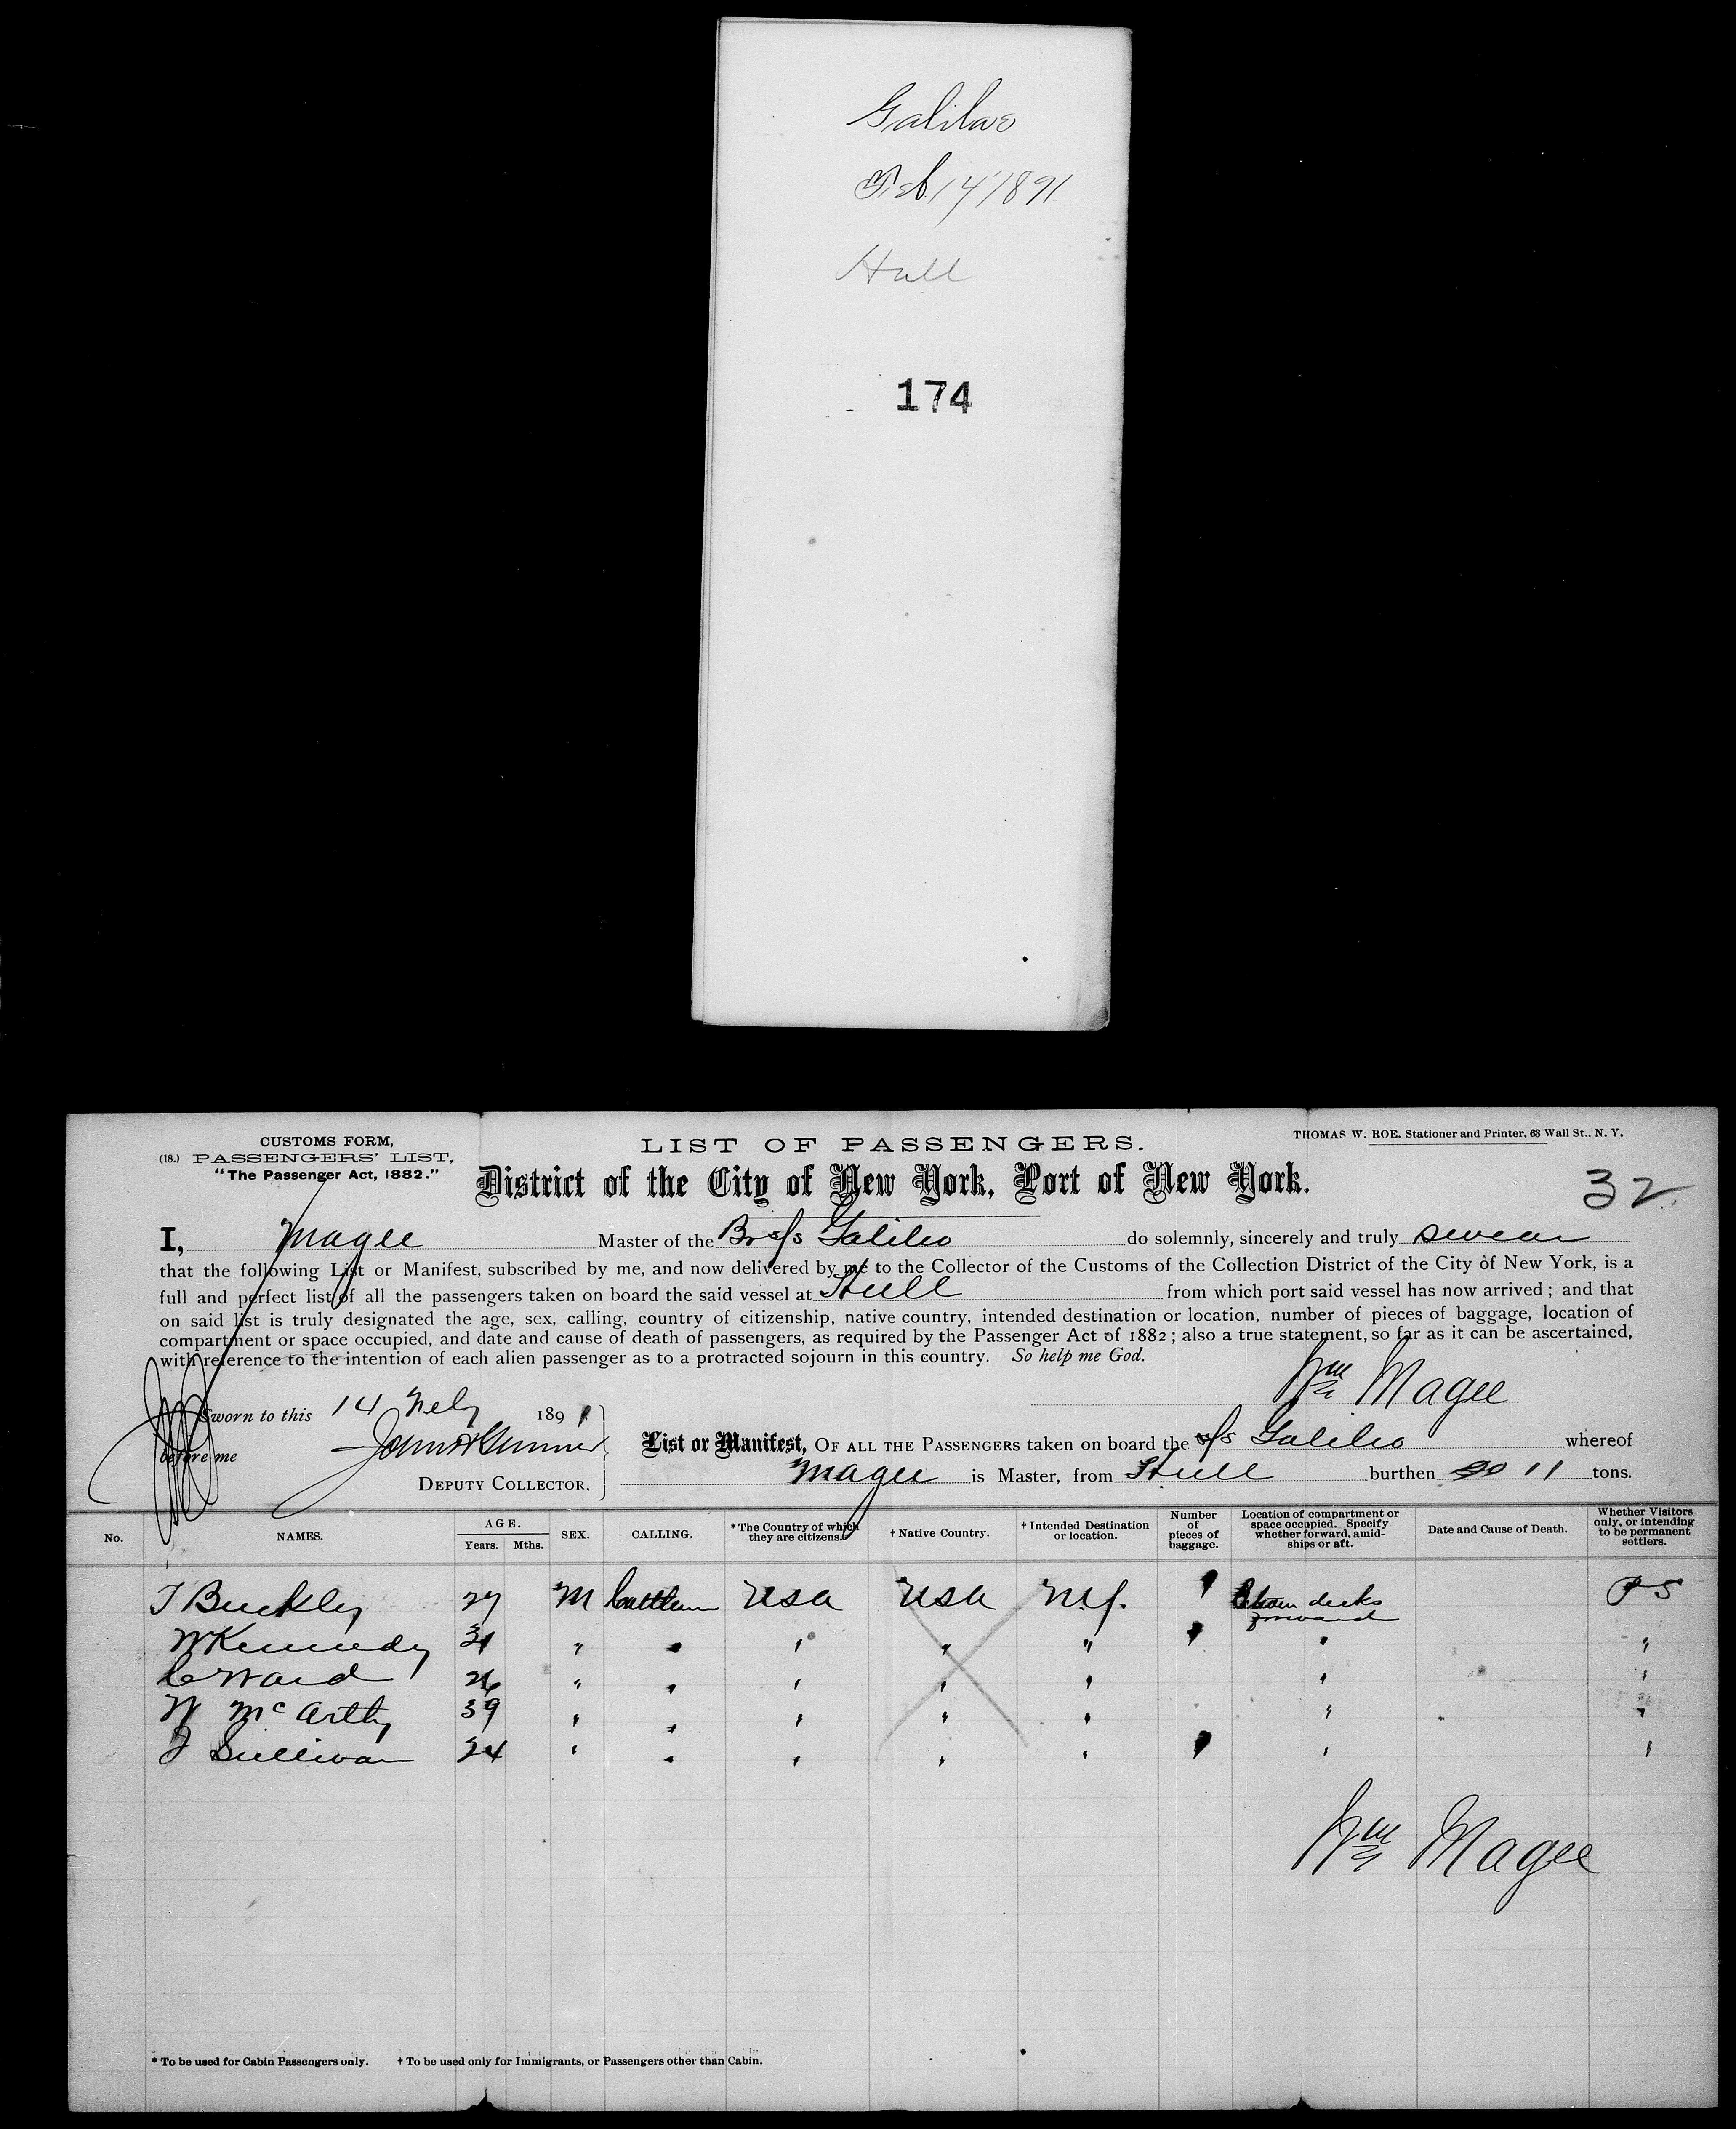 Galileo
Feb 14 1891
Hull
174
CUSTOMS FORM,
(18.) PASSENGERS' LIST,
"The Passenger Act, 1882."
LIST OF PASSENGERS.
THOMAS W. ROE. Stationer and Printer, 63 Wall St., N. Y.
District of the City of New York, Port of New York.
32
I, Magee Master of the Br s/s Galileo do solemnly, sincerely and truly swear
that the following List or Manifest, subscribed by me, and now delivered by me to the Collector of the Customs of the Collection District of the City of New York, is a
full and perfect list of all the passengers taken on board the said vessel at Hull from which port said vessel has now arrived; and that
on said list is truly designated the age, sex, calling, country of citizenship, native country, intended destination or location, number of pieces of baggage, location of
compartment or space occupied, and date and cause of death of passengers, as required by the Passenger Act of 1882; also a true statement, so far as it can be ascertained,
with reference to the intention of each alien passenger as to a protracted sojourn in this country. So help me God.
Wm Magee
Sworn to this 14 Feby 1891
before me
DEPUTY COLLECTOR.
List or Manifest, OF ALL THE PASSENGERS taken on board the s/s Galileo whereof
Magee is Master, from Hull burthen 11 tons.
No. NAMES. AGE. Years. Mths. SEX. CALLING. * The Country of which they are citizens. † Native Country. † Intended Destination or location. Number of pieces of baggage. Location of compartment or space occupied. Specify whether forward, amidships or aft. Date and Cause of Death. Whether Visitors only, or intending to be permanent settlers.
T Buckley 27 M Cattleman USA USA N.Y. decks forward PS
W Kennedy 31 " " " " " " "
C Ward 26 " " " " " " "
W McArthy 39 " " " " " " "
J Sullivan 24 " " " " " " "
Wm Magee
* To be used for Cabin Passengers only. † To be used only for Immigrants, or Passengers other than Cabin.